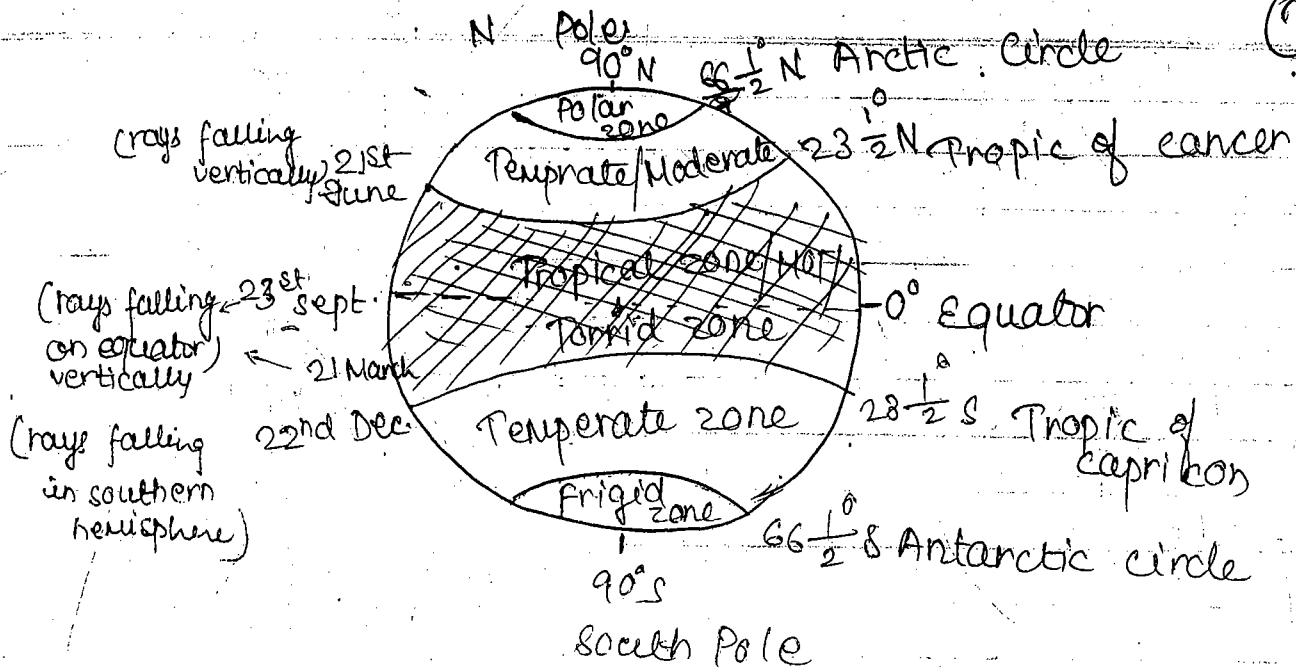 N Poles
90° N
66 1/2° N Arctic Circle
Polar zone
(rays falling vertically) 21st June
Temprate/Moderate
23 1/2° N Tropic of cancer
Tropical zone/HOT/
Torrid zone
(rays falling on equator) vertically
23st sept.
21 March
0° Equator
(rays falling in southern hemisphere)
22nd Dec.
Temperate zone
28 1/2° S Tropic of capricon
Frigid zone
66 1/2° S Antarctic circle
90° S
South Pole